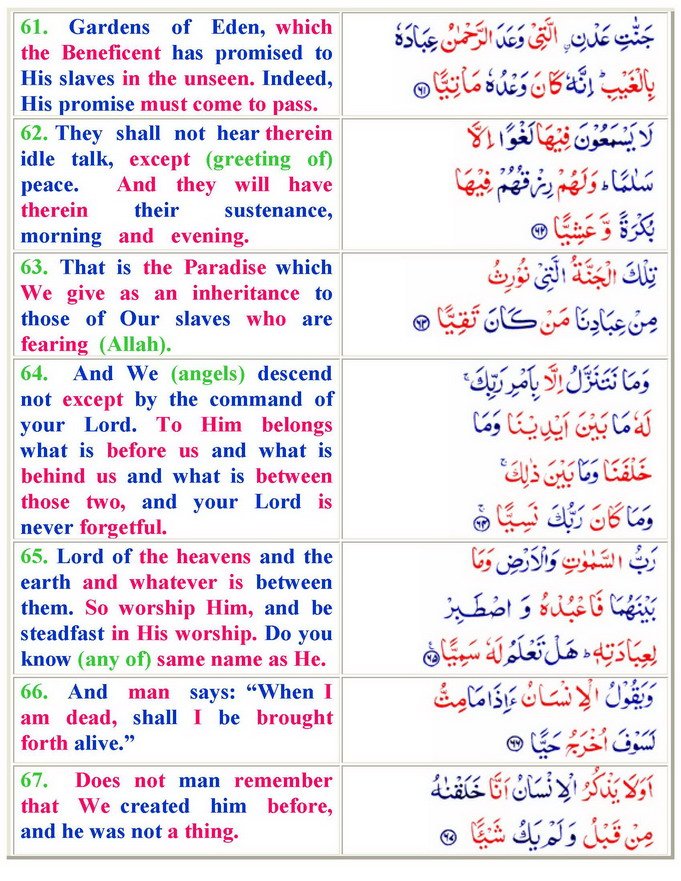 61. Gardens of Eden, which
the Beneficent has promised to
His slaves in the unseen. Indeed,
His promise must come to pass.
جَنّٰتِ عَدْنِ ۣالَّتِىْ وَعَدَ الرَّحْمٰنُ عِبَادَهٗ
بِالْغَيْبِ ؕ اِنَّهٗ كَانَ وَعْدُهٗ مَاْتِيًّا ۶۱
62. They shall not hear therein
idle talk, except (greeting of)
peace. And they will have
therein their sustenance,
morning and evening.
لَا يَسْمَعُوْنَ فِيْهَا لَغْوًا اِلَّا
سَلٰمًا ؕ وَلَهُمْ رِزْقُهُمْ فِيْهَا
بُكْرَةً وَّعَشِيًّا ۶۲
63. That is the Paradise which
We give as an inheritance to
those of Our slaves who are
fearing (Allah).
تِلْكَ الْجَنَّةُ الَّتِىْ نُوْرِثُ
مِنْ عِبَادِنَا مَنْ كَانَ تَقِيًّا ۶۳
64. And We (angels) descend
not except by the command of
your Lord. To Him belongs
what is before us and what is
behind us and what is between
those two, and your Lord is
never forgetful.
وَمَا نَتَنَزَّلُ اِلَّا بِاَمْرِ رَبِّكَ ۚ
لَهٗ مَا بَيْنَ اَيْدِيْنَا وَمَا
خَلْفَنَا وَمَا بَيْنَ ذٰلِكَ ۚ
وَمَا كَانَ رَبُّكَ نَسِيًّا ۶۴
65. Lord of the heavens and the
earth and whatever is between
them. So worship Him, and be
steadfast in His worship. Do you
know (any of) same name as He.
رَبُّ السَّمٰوٰتِ وَالْاَرْضِ وَمَا
بَيْنَهُمَا فَاعْبُدْهُ وَ اصْطَبِرْ
لِعِبَادَتِهٖ ؕ هَلْ تَعْلَمُ لَهٗ سَمِيًّا ۶۵
66. And man says: “When I
am dead, shall I be brought
forth alive.”
وَيَقُوْلُ الْاِنْسَانُ ءَاِذَا مَا مِتُّ
لَسَوْفَ اُخْرَجُ حَيًّا ۶۶
67. Does not man remember
that We created him before,
and he was not a thing.
اَوَلَا يَذْكُرُ الْاِنْسَانُ اَنَّا خَلَقْنٰهُ
مِنْ قَبْلُ وَلَمْ يَكُ شَيْـًٔا ۶۷